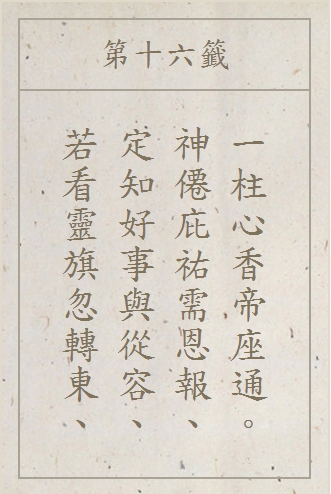 第十六籤
一柱心香帝座通。
神僊庇祐需恩報、
定知好事與從容、
若看靈旗忽轉東、